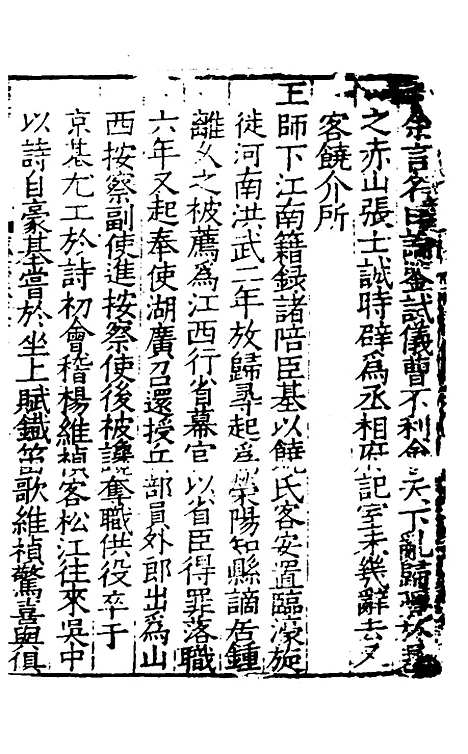 余言名曰論鑒試儀曹不利會天下亂歸
之赤山張士誠時辟為丞相府記室未幾辭去夕
客饒介所
王師下江南籍錄諸陪臣基以饒氏客安置臨濠旋
徙河南洪武二年放歸尋起為滎陽知縣謫居鍾
離久之被薦為江西行省幕官以省臣得罪落職
六年又起奉使湖廣召還授兵部員外郎出為山
西按察副使進按察使後被讒奪職供役卒于
京基尤工於詩初會稽楊維禎客松江往來吳中
以詩自豪基嘗於坐上賦鐵笛歌維禎驚喜與俱